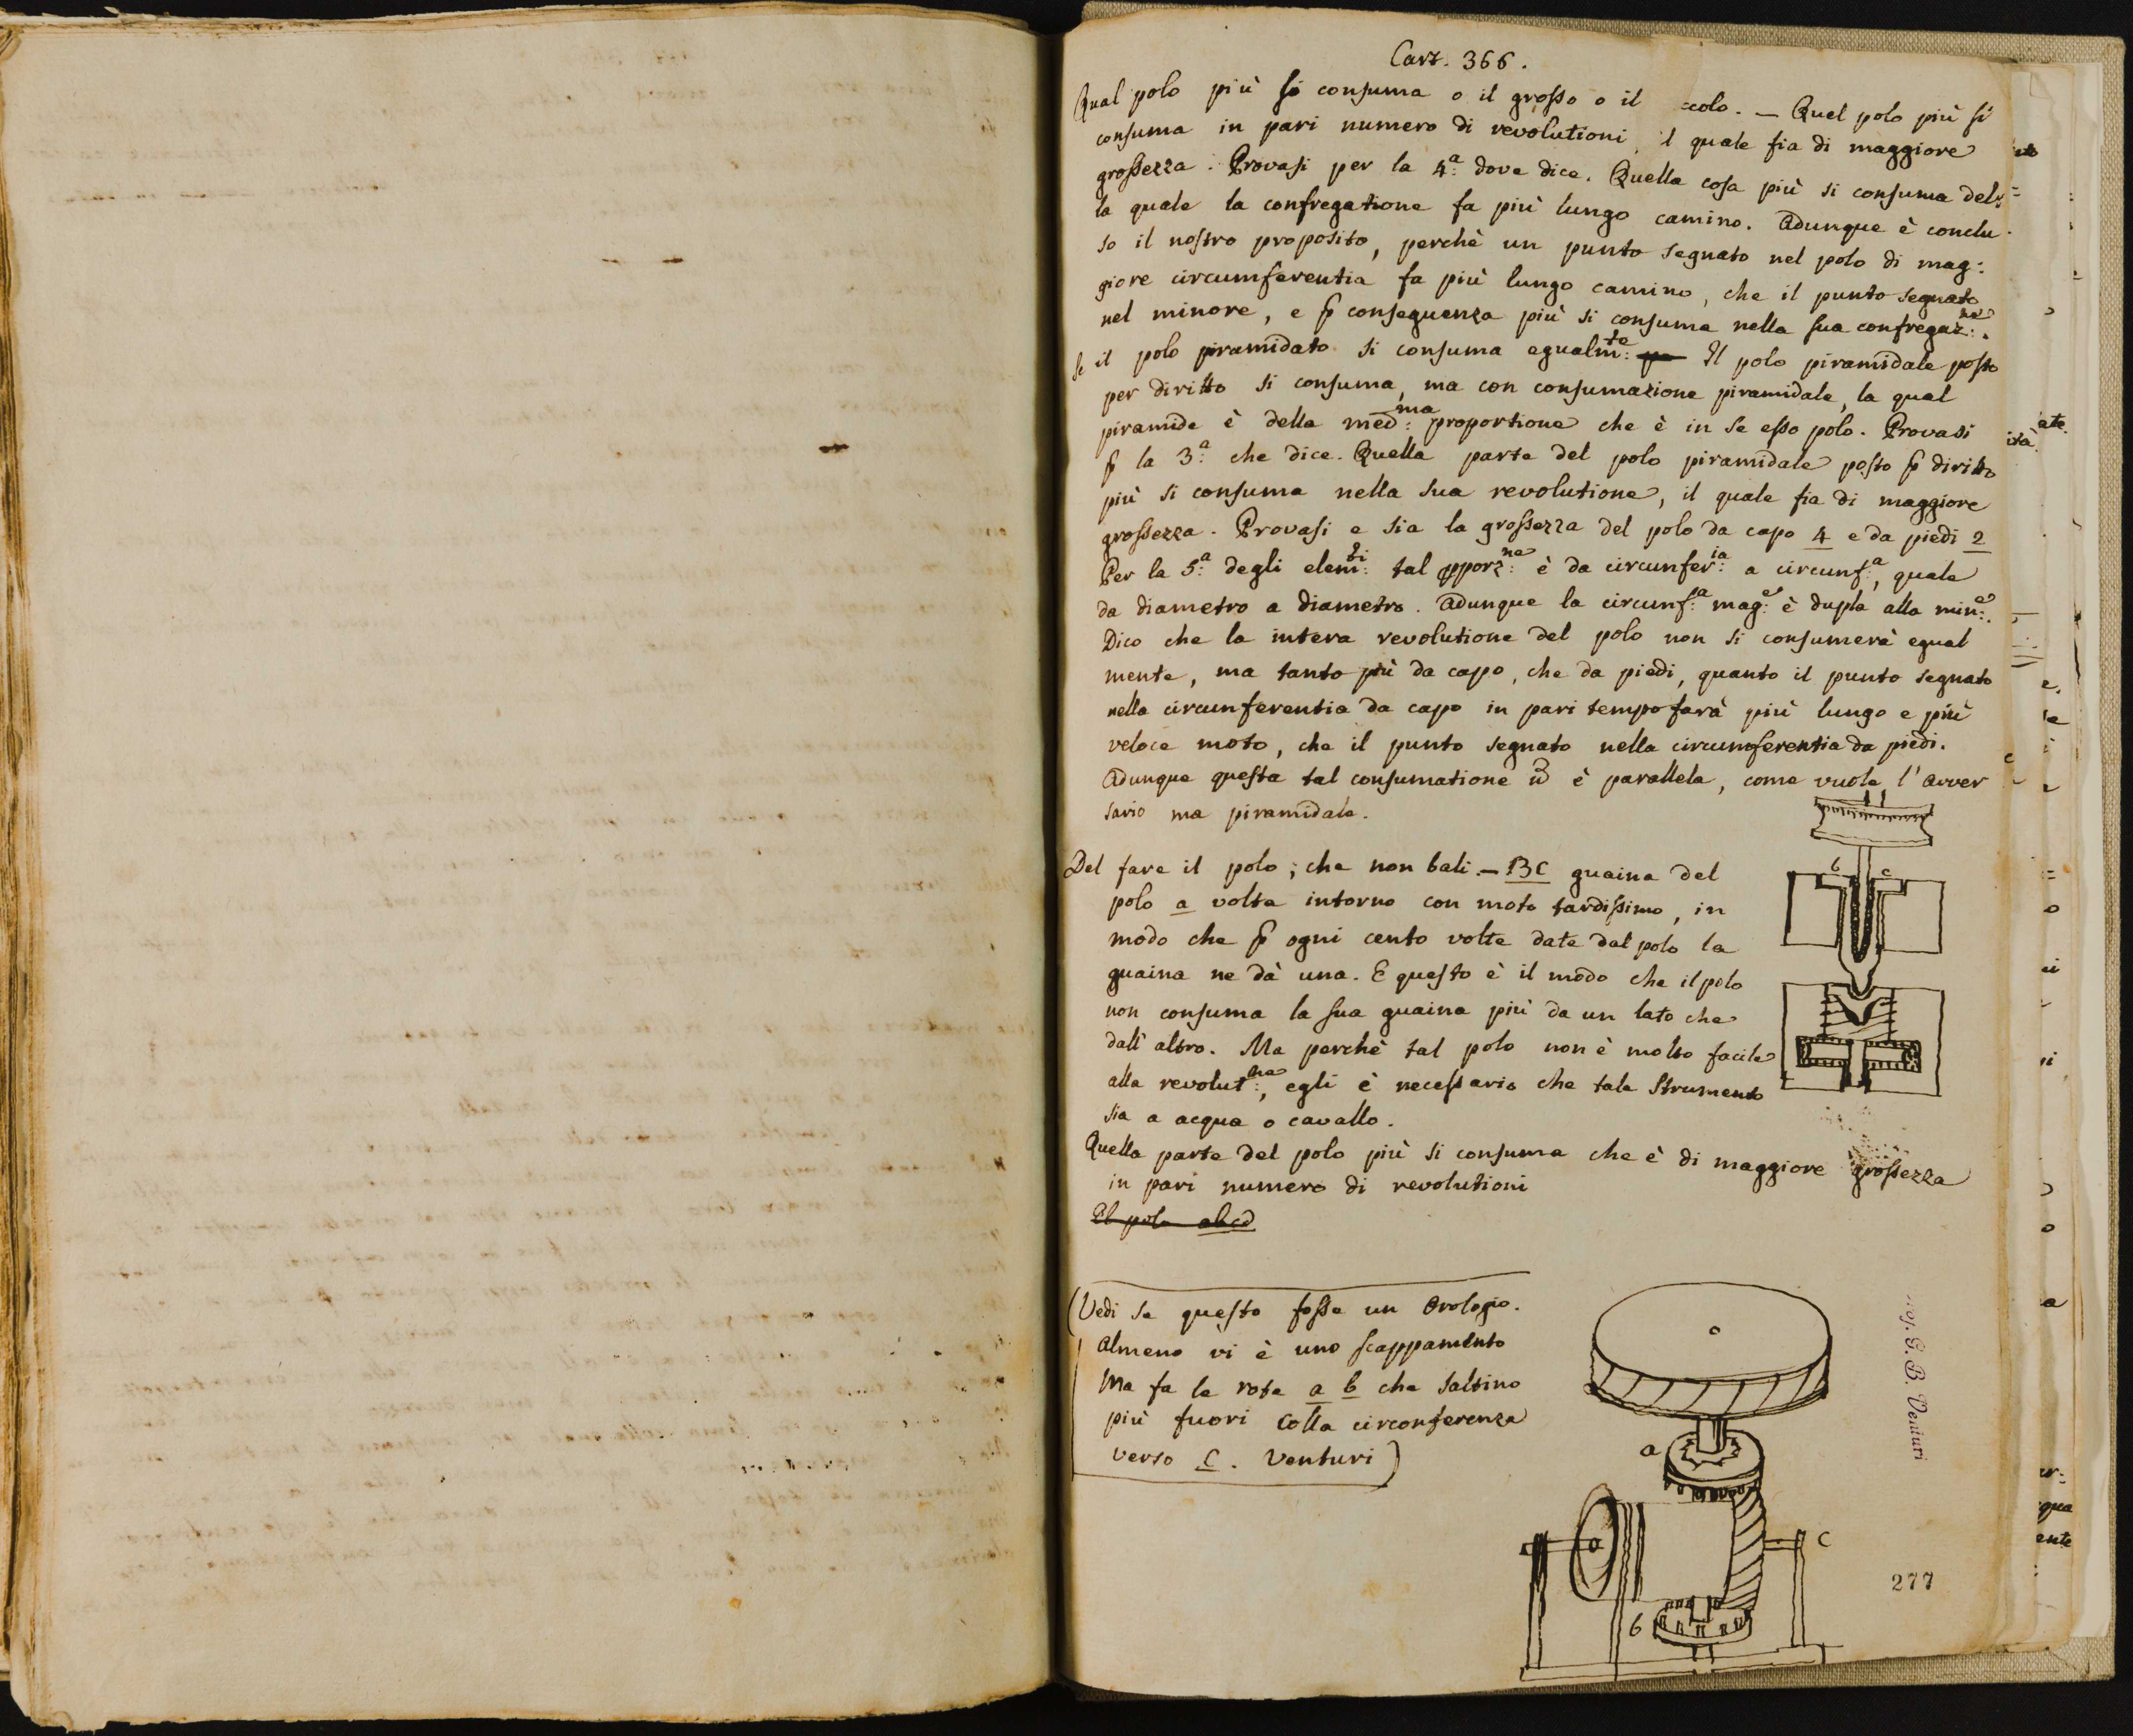 Cart. 366.
Qual polo più si consuma o il grosso o il ccolo. — Quel polo più si
consuma in pari numero di revolutioni, il quale fia di maggiore
grossezza. Provasi per la 4.ª dove dice. Quella cosa più si consuma del=
la quale la confregatione fa più lungo camino. Adunque è conclu=
so il nostro proposito, perchè un punto segnato nel polo di mag:
giore circumferentia fa più lungo camino, che il punto segnato
nel minore, e p conseguenza più si consuma nella sua confregaz:ne.
Se il polo piramidato si consuma egualm:te Il polo piramidale posto
per diritto si consuma, ma con consumazione piramidale, la qual
piramide è della med:ma proportione che è in se esso polo. Provasi
p la 3.ª che dice. Quella parte del polo piramidale posto p diritto
più si consuma nella sua revolutione, il quale fia di maggiore
grossezza. Provasi e sia la grossezza del polo da capo 4 e da piedi 2
Per la 5.ª degli elem:ti tal pporz:ne è da circunfer:ia a circunf:a, quale
da diametro a diametro. Adunque la circunf:a mag:e è dupla alla min:e.
Dico che la intera revolutione del polo non si consumerà egual
mente, ma tanto più da capo, che da piedi, quanto il punto segnato
nella circunferentia da capo in pari tempo farà più lungo e più
veloce moto, che il punto segnato nella circumferentia da piedi.
Adunque questa tal consumatione nō è parallela, come vuole l'avver
sario ma piramidale.
Del fare il polo; che non bali. — BC guaina del
polo a volta intorno con moto tardissimo, in
modo che p ogni cento volte date dal polo la
guaina ne dà una. E questo è il modo che il polo
non consuma la sua guaina più da un lato che
dall'altro. Ma perchè tal polo non è molto facile
alla revolut:ne, egli è necessario che tale strumento
sia a acqua o cavallo.
b c
Quella parte del polo più si consuma che è di maggiore grossezza
in pari numero di revolutioni
El polo abcd
(Vedi se questo fosse un Orologio.
Almeno vi è uno scappamento
Ma fa le rote a b che saltino
più fuori colla circonferenza
verso C. Venturi)
a
C
b
G. B. Venturi
277